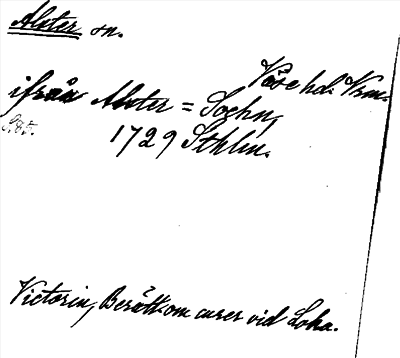 Alster sn.
Väse hd. Vrm.
ifrån Alster = Soghn,
S. 85.
1729 Sthlm.
Victorin, Berätt. om curer vid Loka.